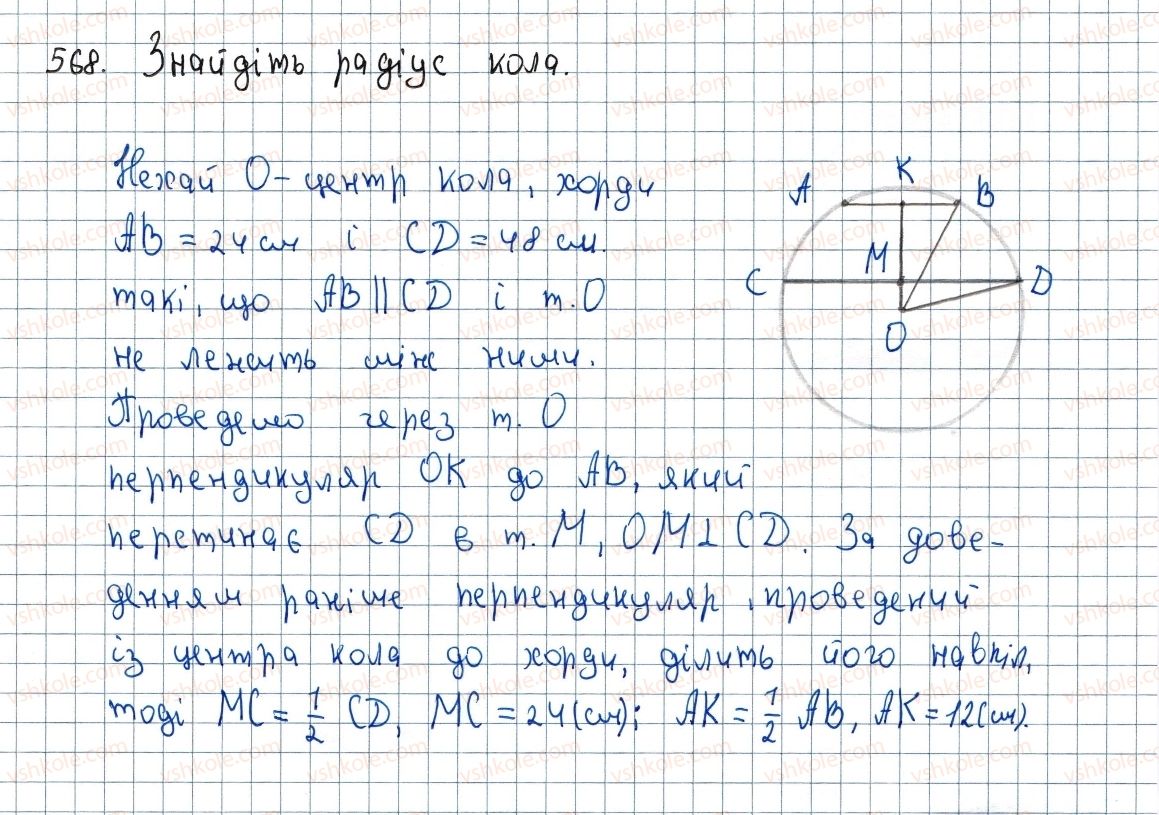 568. Знайдіть радіус кола.
Нехай О - центр кола, хорди
AB = 24 см і CD = 48 см.
такі, що AB || CD і т. О
не лежить між ними.
Проведемо через т. О
перпендикуляр OK до AB, який
перетинає CD в т. M, OM ⊥ CD. За дове-
денням раніше перпендикуляр, проведений
із центра кола до хорди, ділить його навпіл,
тоді MC = 1/2 CD, MC = 24 (см); AK = 1/2 AB, AK = 12 (см).
A K B
C M D
O
vshkole.com